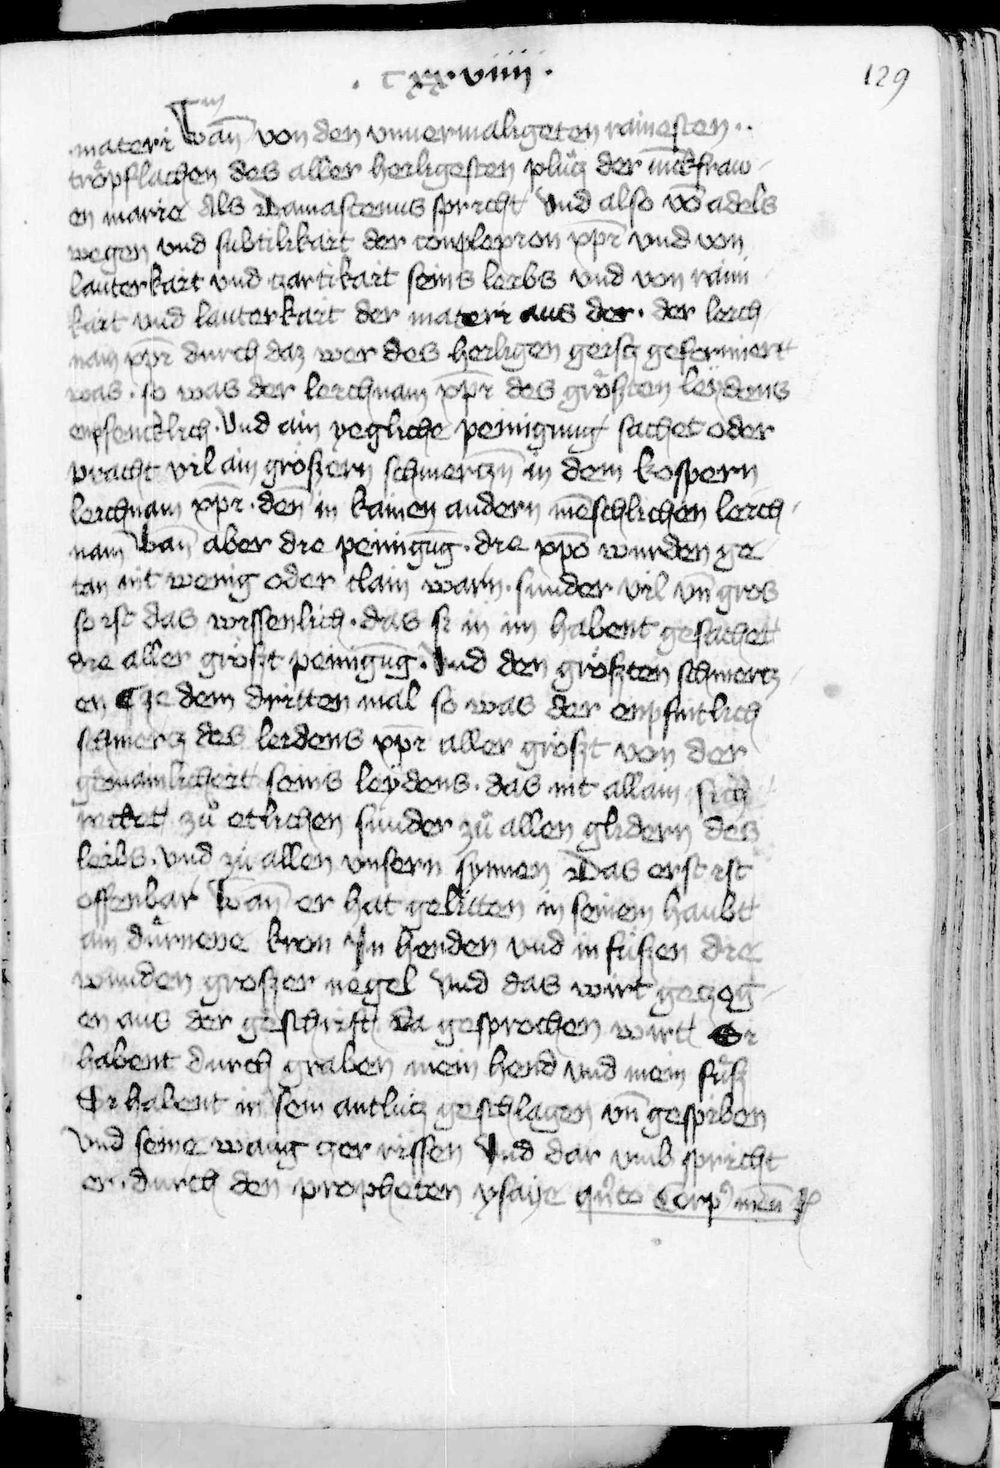 . cxx.viiii .
129
materi Wan̄ von den vnuermaligeten rainesten..
trőpflachen des aller heiligesten plůtz der iūckfraw-
en marie Als Damascenus spricht Vnd also vō adels
wegen vnd subtilikait der conplexion xp̄i vnd von
lauterkait vnd zartikait seins leibs vnd von raini
kait vnd lauterkait der materi aus der. der leich
nam xp̄i durch daz wer des heiligen geistz geformiert
was. so was der leichnam xp̄i des grősten leÿdens
enpfencklich. Vnd ain yegliche peinigung sachet oder
pracht vil ain grossern schmertzn̄ in dem kospern
leichnam xp̄i. den in kainen andern mēschlichen leich-
nam Wan̄ aber die peinigūg. die xp̄o wurden ge
tan nit wenig oder clain warn. sunder vil vn̄ gros
so ist das wissenlich. das si in im habent gesachet
die aller gröszt peinigūg. Vnd den gröszten schmertz-
en Ze dem dritten mal so was der enpfintlich
schmertz des leidens xp̄i aller gröszt von der
gemainlicheit seins leÿdens. das nit allain sich
zů etlichen sunder zů allen glidern des
leibs. Vnd zu allen vnsern synnen Das erst ist
offenbar Wan̄ er hat gelitten in seinem haubt
ain důrnene kron In henden vnd in füszen die
wunden groszer negel Vnd das wirt getzog-
en aus der geschrift Da gesprochen wirt Si
habent durch graben mein hend vnd mein fůsz
Si habent in sein antlütz geschlagen vn̄ gespiben
Vnd seine wang zer rissen Vnd dar vmb spricht
er. durch den propheten ysaÿe qn̊to Corp᾽ meū